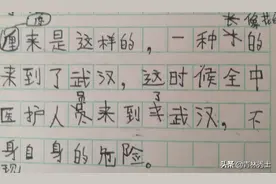 来是这样的，一种 的
来到了武汉，这时候全中
员 了
医护人 来到 武汉，不
身自身的危险。